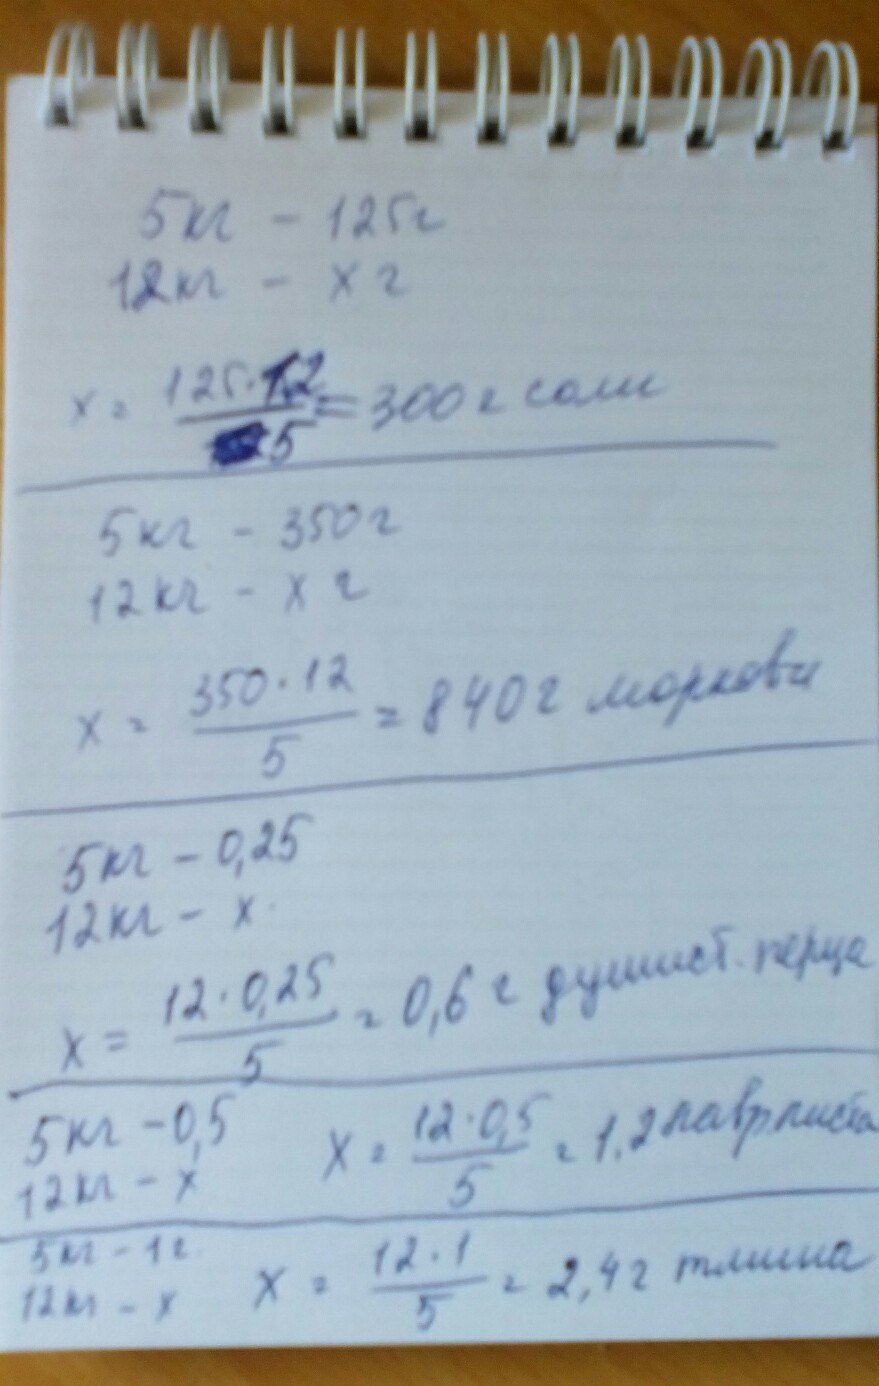 5кг - 125г
12кг - х г
х = 125·12 / 5 = 300 г соли
5кг - 350г
12кг - х г
х = 350·12 / 5 = 840 г моркови
5кг - 0,25
12кг - х
х = 12·0,25 / 5 = 0,6 г душист. перца
5кг - 0,5
12кг - х
х = 12·0,5 / 5 = 1,2 лавр листа
5кг - 1г
12кг - х
х = 12·1 / 5 = 2,4 г тмина